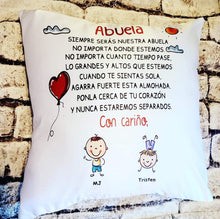 Abuela
SIEMPRE SERÁS NUESTRA ABUELA
NO IMPORTA DONDE ESTEMOS.
NO IMPORTA CUANTO TIEMPO PASE,
LO GRANDES Y ALTOS QUE ESTEMOS
CUANDO TE SIENTAS SOLA,
AGARRA FUERTE ESTA ALMOHADA,
PONLA CERCA DE TU CORAZÓN
Y NUNCA ESTAREMOS SEPARADOS.
Con cariño,
MJ Tristen